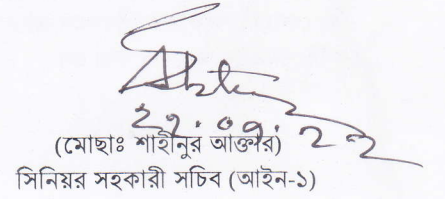 ২৭.০৭.২২
(মোছাঃ শাহীনুর আক্তার)
সিনিয়র সহকারী সচিব (আইন-১)